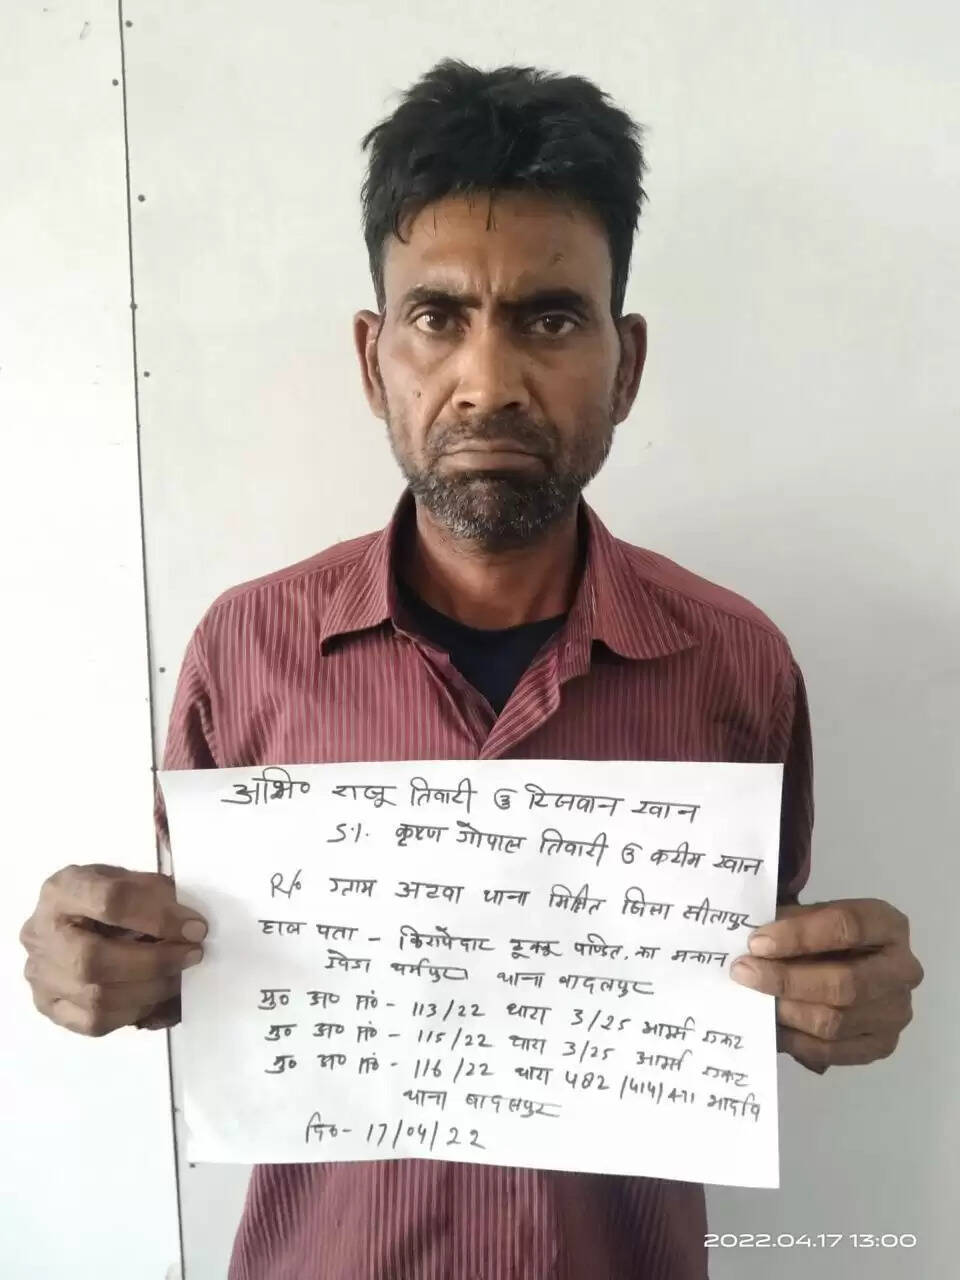 अभि० राजू तिवारी उ रिजवान खान
S/. कृष्ण गोपाल तिवारी उ करीम खान
R/o ग्राम अटवा थाना मिश्रित जिला सीतापुर
हाल पता - किरायेदार टूक्कू पण्डित, का मकान
खेडा धर्मपुरा थाना बादलपुर
मु० अ० सं० - 113/22 धारा 3/25 आर्म्स एक्ट
मु० अ० सं० - 115/22 धारा 3/25 आर्म्स एक्ट
मु० अ० सं० - 116/22 धारा 482/414/471 भादवि
थाना बादलपुर
दि०- 17/04/22
2022.04.17 13:00